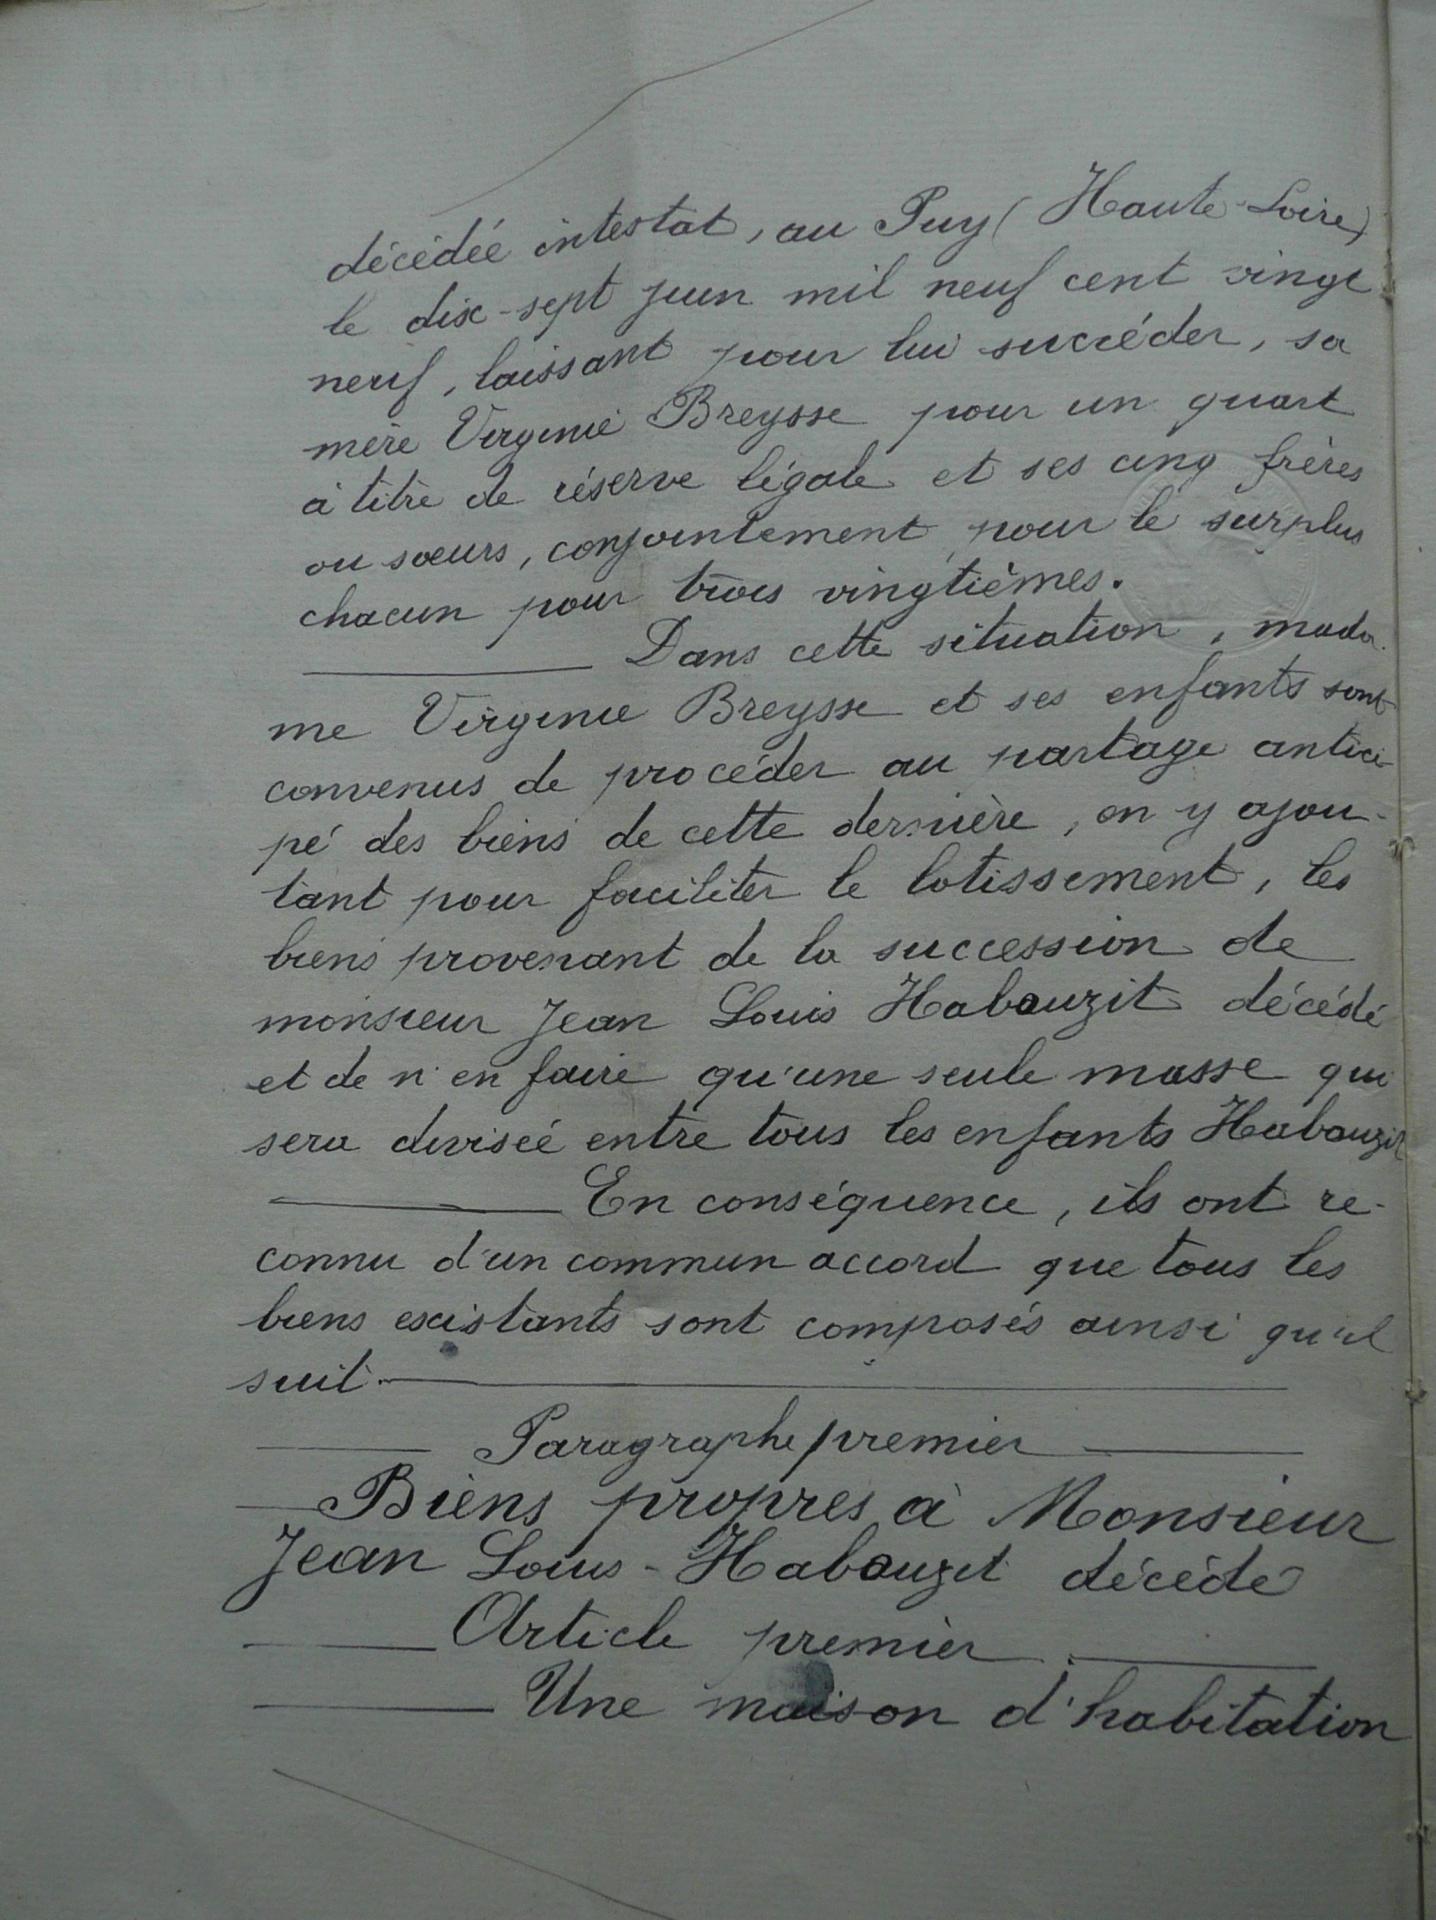 décédée intestat, au Puy (Haute-Loire)
le dix-sept juin mil neuf cent vingt
neuf, laissant pour lui succéder, sa
mère Virginie Breysse pour un quart
à titre de réserve légale et ses cinq frères
ou sœurs, conjointement pour le surplus
chacun pour trois vingtièmes.
Dans cette situation, mada-
me Virginie Breysse et ses enfants sont
convenus de procéder au partage antici-
pé des biens de cette dernière, en y ajou-
tant pour faciliter le lotissement, les
biens provenant de la succession de
monsieur Jean Louis Habauzit décédé
et de n'en faire qu'une seule masse qui
sera divisée entre tous les enfants Habauzit
En conséquence, ils ont re-
connu d'un commun accord que tous les
biens existants sont composés ainsi qu'il
suit.
Paragraphe premier
Biens propres à Monsieur
Jean Louis-Habauzit décédé
Article premier
Une maison d'habitation